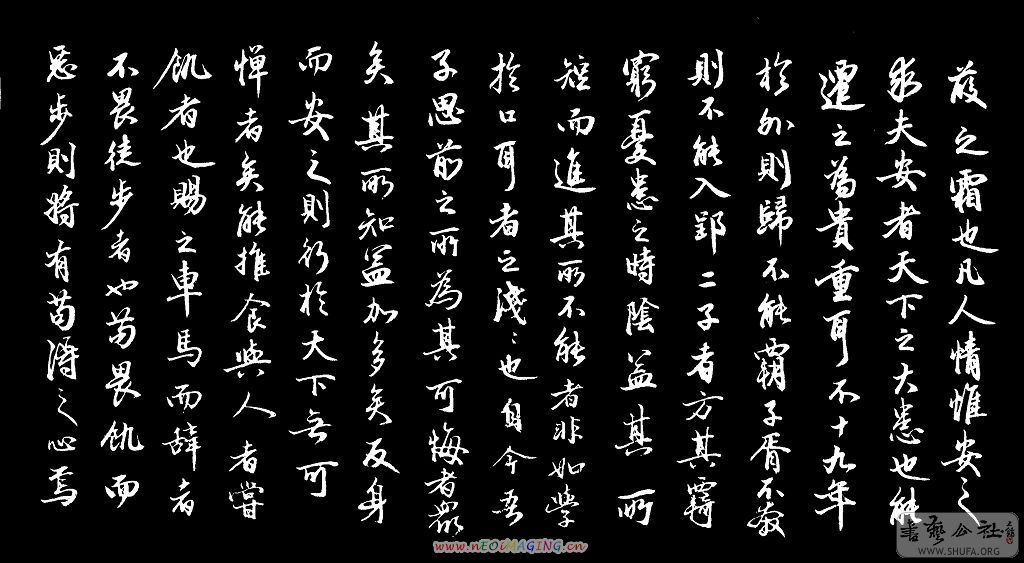 葭之霜也凡人情惟安之
求夫安者天下之大患也能
遷之為貴重耳不十九年
於外則歸不能霸子胥不奔
則不能入郢二子者方其羈
窮憂患之時陰益其所
短而進其所不能者非如學
於口耳者之淺〻也自今吾
子思前之所為其可悔者眾
矣其所知益加多矣反身
而安之則行於天下無可
憚者矣能推食與人者嘗
飢者也賜之車馬而辭者
不畏徒步者也苟畏飢而
惡步則將有苟得之心焉
www.nEOiMAGING.cn
書藝公社
WWW.SHUFA.ORG